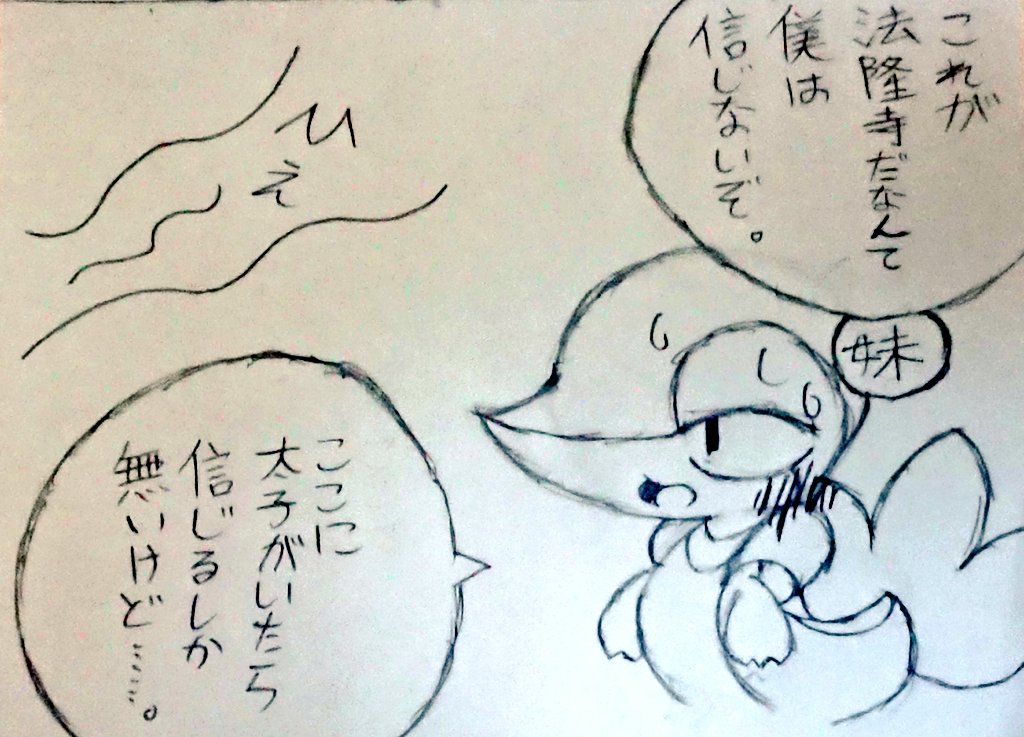 これが
法隆寺だなんて
僕は
信じないぞ。
妹
ひえ
ここに
太子がいたら
信じるしか
無いけど……。